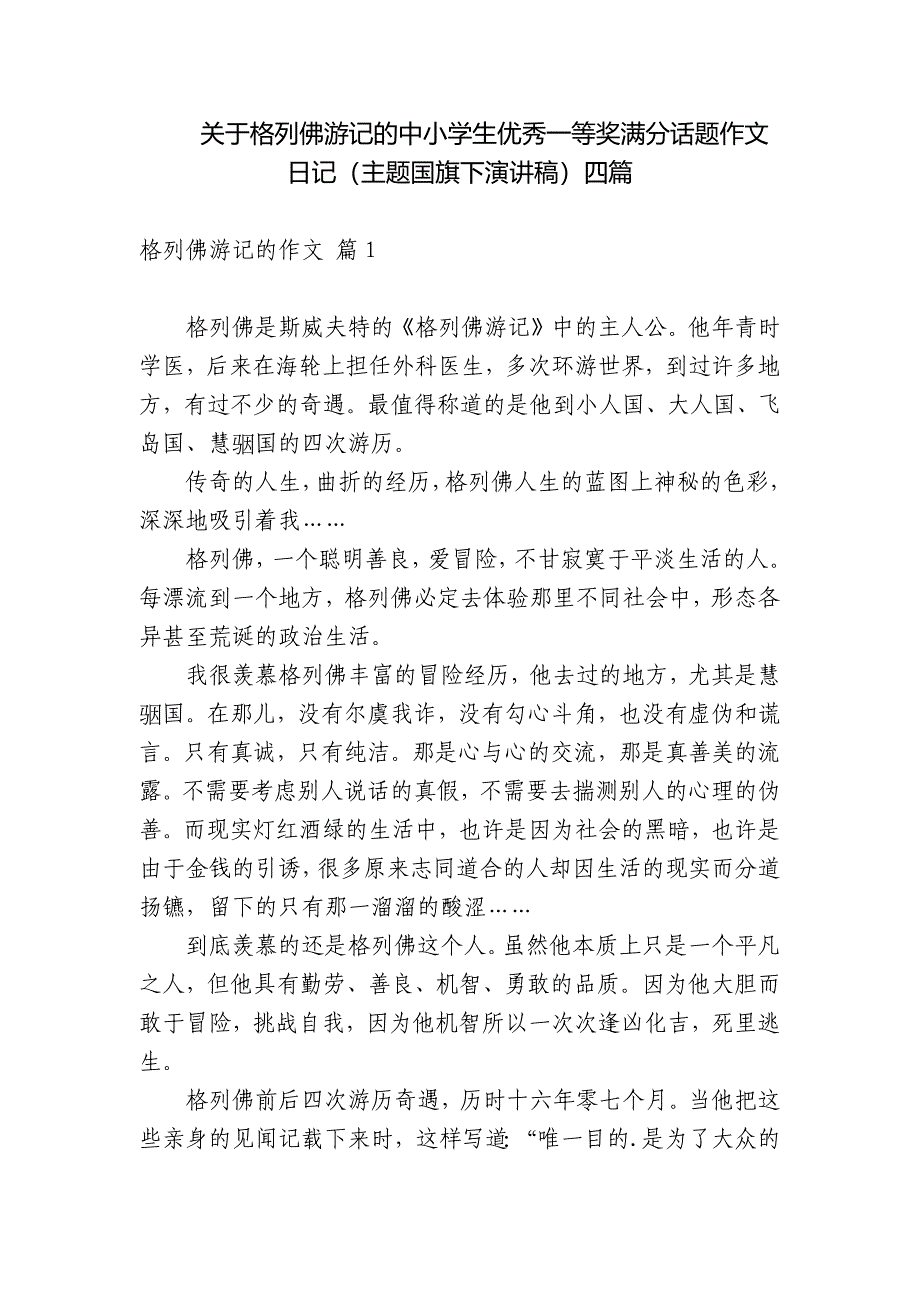 关于格列佛游记的中小学生优秀一等奖满分话题作文
日记（主题国旗下演讲稿）四篇
格列佛游记的作文 篇1
格列佛是斯威夫特的《格列佛游记》中的主人公。他年青时
学医，后来在海轮上担任外科医生，多次环游世界，到过许多地
方，有过不少的奇遇。最值得称道的是他到小人国、大人国、飞
岛国、慧骃国的四次游历。
传奇的人生，曲折的经历，格列佛人生的蓝图上神秘的色彩，
深深地吸引着我……
格列佛，一个聪明善良，爱冒险，不甘寂寞于平淡生活的人。
每漂流到一个地方，格列佛必定去体验那里不同社会中，形态各
异甚至荒诞的政治生活。
我很羡慕格列佛丰富的冒险经历，他去过的地方，尤其是慧
骃国。在那儿，没有尔虞我诈，没有勾心斗角，也没有虚伪和谎
言。只有真诚，只有纯洁。那是心与心的交流，那是真善美的流
露。不需要考虑别人说话的真假，不需要去揣测别人的心理的伪
善。而现实灯红酒绿的生活中，也许是因为社会的黑暗，也许是
由于金钱的引诱，很多原来志同道合的人却因生活的现实而分道
扬镳，留下的只有那一溜溜的酸涩……
到底羡慕的还是格列佛这个人。虽然他本质上只是一个平凡
之人，但他具有勤劳、善良、机智、勇敢的品质。因为他大胆而
敢于冒险，挑战自我，因为他机智所以一次次逢凶化吉，死里逃
生。
格列佛前后四次游历奇遇，历时十六年零七个月。当他把这
些亲身的见闻记载下来时，这样写道：“唯一目的.是为了大众的